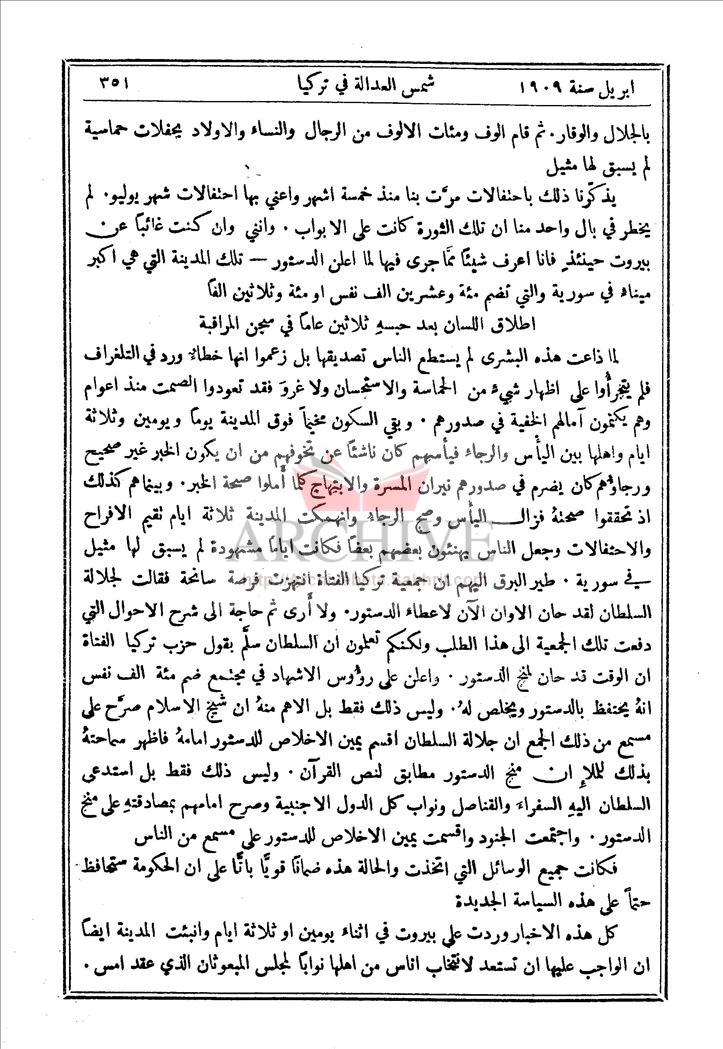 ابريل صنة ١٩٠٩ شمس العدالة في تركيا ٣٥١
بالجلال والوقار. ثم قام الوف ومئات الالوف من الرجال والنساء والاولاد بحفلات حماسية
لم يسبق لها مثيل
يذكّرنا ذلك باحتفالات مرَّت بنا منذ خمسة اشهر واعني بها احتفالات شهر يوليو. لم
يخطر في بال واحد منا ان تلك الثورة كانت على الابواب. وانني وان كنت غائبًا عن
بيروت حينئذٍ فانا اعرف شيئًا ممَّا جرى فيها لما اعلن الدستور — تلك المدينة التي هي اكبر
ميناء في سورية والتي تضم مئة وعشرين الف نفس او مئة وثلاثين الفا
اطلاق اللسان بعد حبسهِ ثلاثين عامًا في سجن المراقبة
لما ذاعت هذه البشرى لم يستطع الناس تصديقها بل زعموا انها خطاء ورد في التلغراف
فلم يتجرأُوا على اظهار شيء من الحماسة والاستحسان ولا غروَ فقد تعودوا الصمت منذ اعوام
وهم يكتمون آمالهم الخفية في صدورهم. وبقي السكون مخيمًا فوق المدينة يومًا ويومين وثلاثة
ايام واهلها بين اليأس والرجاء فيأسهم كان ناشئًا عن تخوفهم من ان يكون الخبر غير صحيح
ورجاؤهم كان يضرم في صدورهم نيران المسرة والابتهاج كلما أملوا صحة الخبر. وبينما هم كذلك
اذ تحققوا صحتهُ فزال اليأس وصح الرجاء وانهمكت المدينة ثلاثة ايام تقيم الافراح
والاحتفالات وجعل الناس يهنئون بعضهم بعضًا فكانت ايامًا مشهودة لم يسبق لها مثيل
في سورية. طير البرق اليهم ان جمعية تركيا الفتاة انتهزت فرصة سانحة فقالت لجلالة
السلطان لقد حان الاوان الآن لاعطاء الدستور. ولا أرى ثم حاجة الى شرح الاحوال التي
دفعت تلك الجمعية الى هذا الطلب ولكنكم تعلمون ان السلطان سلَّم بقول حزب تركيا الفتاة
ان الوقت قد حان لمنح الدستور. واعلن على رؤوس الاشهاد في مجتمع ضم مئة الف نفس
انهُ يحتفظ بالدستور ويخلص لهُ. وليس ذلك فقط بل الاهم منهُ ان شيخ الاسلام صرَّح على
مسمع من ذلك الجمع ان جلالة السلطان اقسم يمين الاخلاص للدستور امامهُ فاظهر سماحتهُ
بذلك للملإِ ان منح الدستور مطابق لنص القرآن. وليس ذلك فقط بل استدعى
السلطان اليهِ السفراء والقناصل ونواب كل الدول الاجنبية وصرح امامهم بمصادقتهِ على منح
الدستور. واجتمعت الجنود واقسمت يمين الاخلاص للدستور على مسمع من الناس
فكانت جميع الوسائل التي اتخذت والحالة هذه ضمانًا قويًّا باتًّا على ان الحكومة ستحافظ
حتمًا على هذه السياسة الجديدة
كل هذه الاخبار وردت على بيروت في اثناء يومين او ثلاثة ايام وانبئت المدينة ايضًا
ان الواجب عليها ان تستعد لانتخاب اناس من اهلها نوابًا لمجلس المبعوثان الذي عقد امس.
ARCHIVE